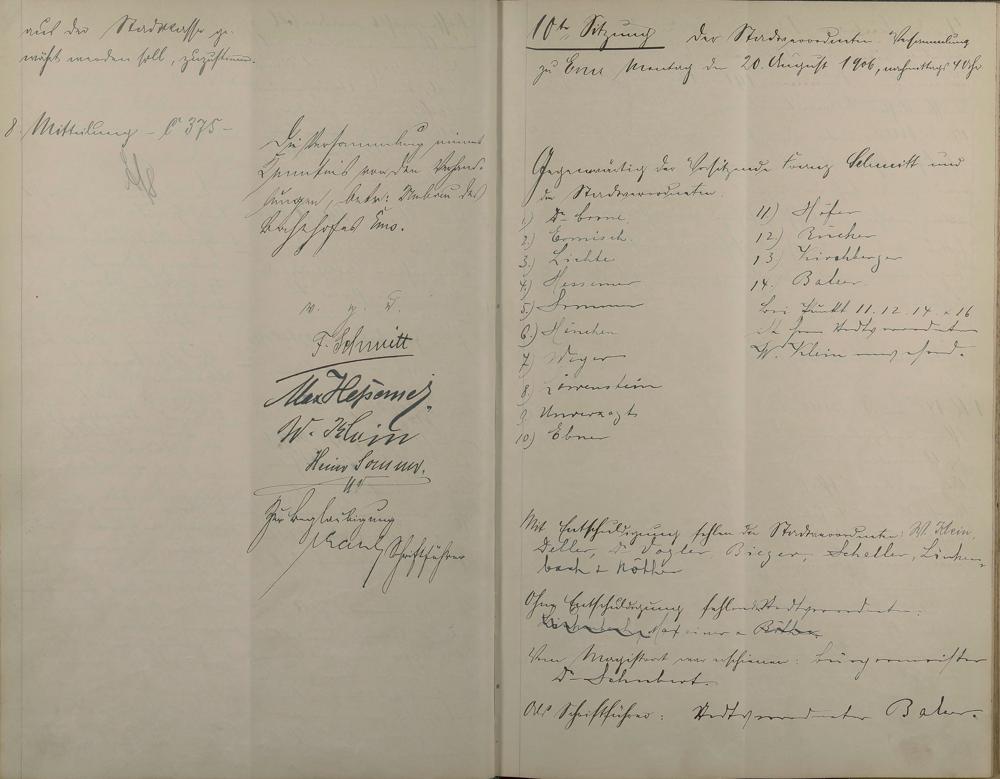 aus der Stadtkasse ge-
währt werden soll, zuzustimm.
8. Mitteilung – C 375 –
Die Versammlung nimmt
Kenntnis von den Verhand-
lungen, betr: Umbau des
Bahnhofes Ems.
v. g. u.
F. Schmitt
Max Hessemer
W. Klein
Heinr Sommer.
Zur Beglaubigung
Schriftführer
10te Sitzung der Stadtverordneten-Versammlung
zu Ems Montag den 20. August 1906, nachmittags 4 Uhr
Gegenwärtig der Vorsitzende Franz Schmitt und
die Stadtverordneten
1) Dr
2.) Ermisch.
3.) Lichte
4.) Hessemer
5.) Sommer
6.)
7.) Weyer
8.) Löwenstein
9. Unverzagt
10) Ebner
11) Höfer
12) Bücher
13) Kirchberger
14. Balzer.
bei Punkt 11. 12. 14. & 16
ist Herr Stadtverordneter
W. Klein anwesend.
Mit Entschuldigung fehlen die Stadtverordneten: W. Klein,
Deller, Dr Vogler, Bieger, Scheller, Linken-
bach &
Ohne Entschuldigung fehlen Stadtverordneten:
Vom Magistrat war erschienen: Bürgermeister
Dr Schubert.
Als Schriftführer: Stadtverordneter Balzer.